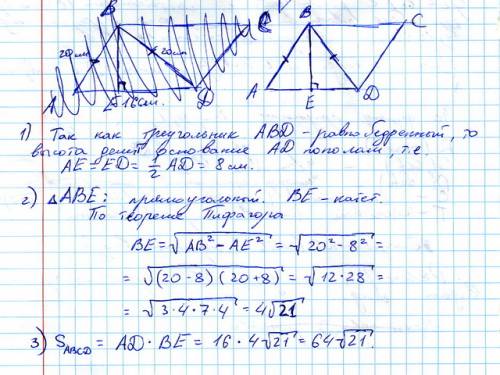 B
C
20 см
20 см
A
E
16 см.
D
B
C
A
E
D
1) Так как треугольник ABD - равнобедренный, то
высота делит основание AD пополам, т.е.
AE = ED = 1/2 AD = 8 см.
2) △ABE: прямоугольный. BE - катет.
По теореме Пифагора
BE = √(AB² - AE²) = √(20² - 8²) =
= √((20-8)(20+8)) = √(12·28) =
= √(3·4·7·4) = 4√21
3) S_ABCD = AD · BE = 16 · 4√21 = 64√21.